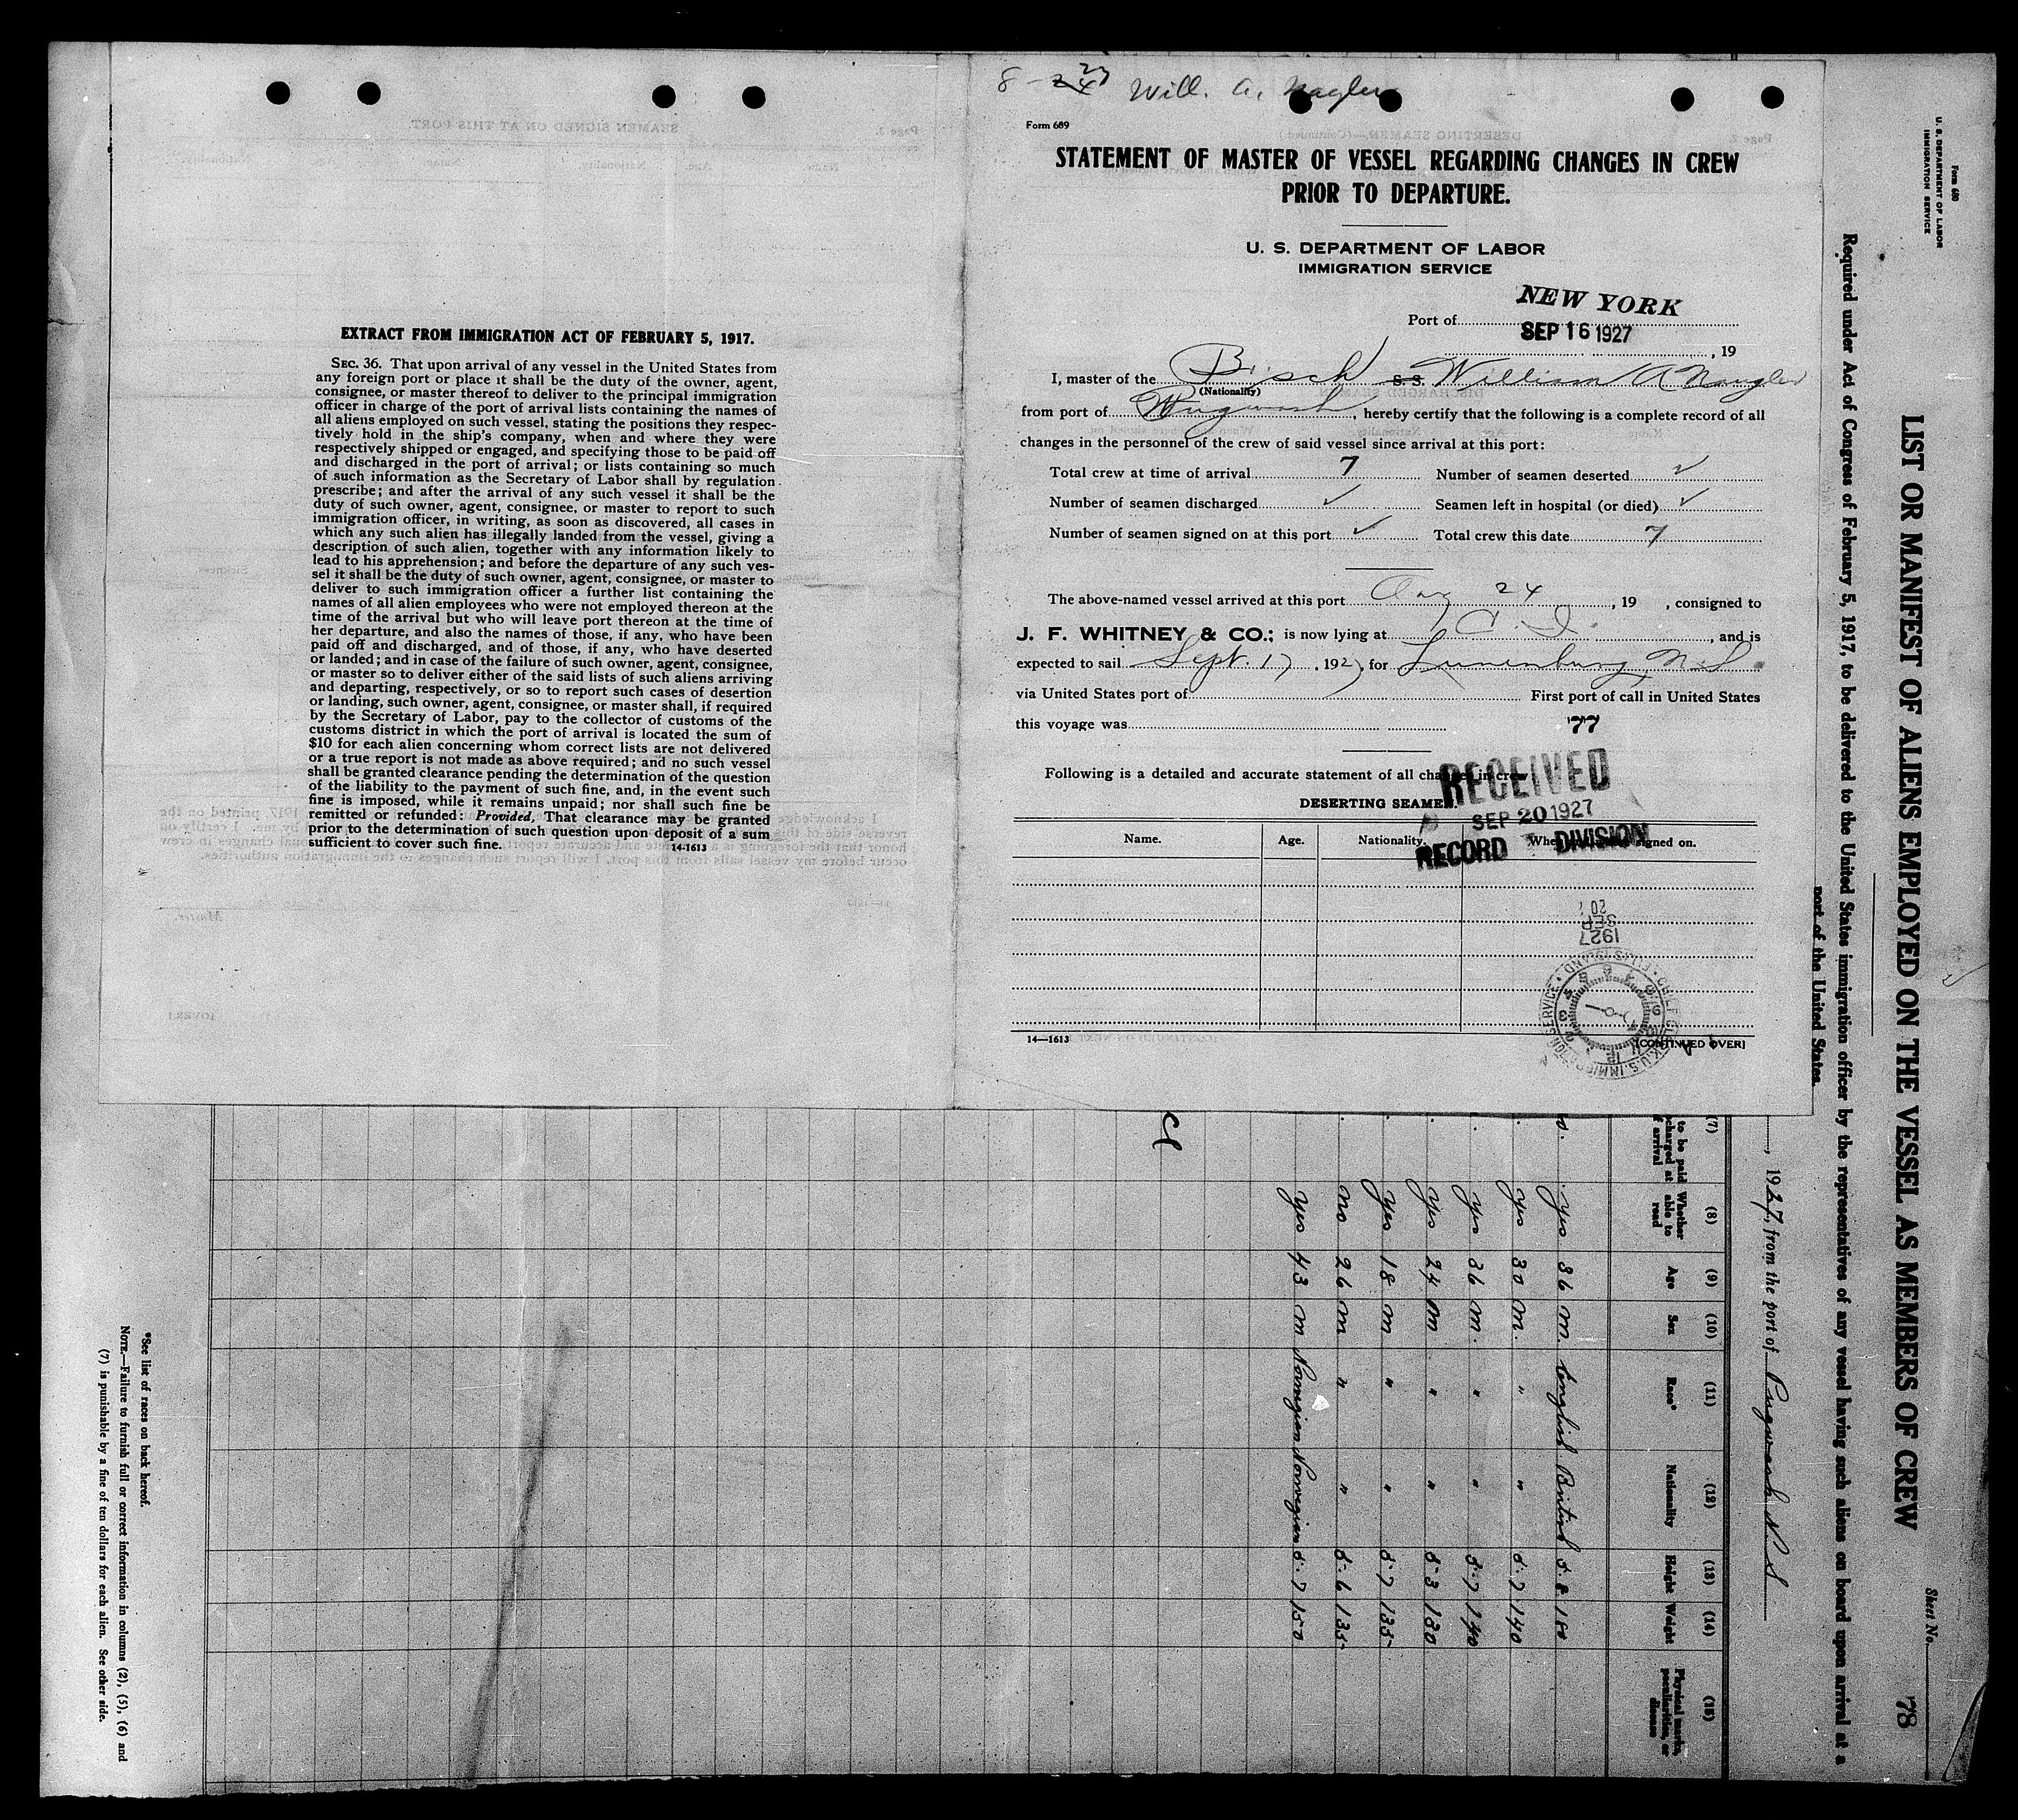 8-23 Will. A. Nagler
Form 689
STATEMENT OF MASTER OF VESSEL REGARDING CHANGES IN CREW
PRIOR TO DEPARTURE.
U. S. DEPARTMENT OF LABOR
IMMIGRATION SERVICE
Port of NEW YORK
SEP 16 1927, 19
I, master of the S.S. William A Naugler
(Nationality)
from port of Pugwash, hereby certify that the following is a complete record of all
changes in the personnel of the crew of said vessel since arrival at this port:
Total crew at time of arrival 7 Number of seamen deserted ✓
Number of seamen discharged ✓ Seamen left in hospital (or died) ✓
Number of seamen signed on at this port ✓ Total crew this date 7
The above-named vessel arrived at this port Aug 24, 19 , consigned to
J. F. WHITNEY & CO.; is now lying at C. I., and is
expected to sail Sept. 17, 1927, for Lunenburg N.S.
via United States port of First port of call in United States
this voyage was 77
Following is a detailed and accurate statement of all changes in crew
RECEIVED
SEP 20 1927
RECORD DIVISION
DESERTING SEAMEN.
Name. Age. Nationality. When signed on.
SEP
20
1927
CHIEF CLERK U.S. IMMIGRATION SERVICE • ELLIS ISLAND •
14—1613
[CONTINUED OVER]
EXTRACT FROM IMMIGRATION ACT OF FEBRUARY 5, 1917.
SEC. 36. That upon arrival of any vessel in the United States from
any foreign port or place it shall be the duty of the owner, agent,
consignee, or master thereof to deliver to the principal immigration
officer in charge of the port of arrival lists containing the names of
all aliens employed on such vessel, stating the positions they respec-
tively hold in the ship's company, when and where they were
respectively shipped or engaged, and specifying those to be paid off
and discharged in the port of arrival; or lists containing so much
of such information as the Secretary of Labor shall by regulation
prescribe; and after the arrival of any such vessel it shall be the
duty of such owner, agent, consignee, or master to report to such
immigration officer, in writing, as soon as discovered, all cases in
which any such alien has illegally landed from the vessel, giving a
description of such alien, together with any information likely to
lead to his apprehension; and before the departure of any such ves-
sel it shall be the duty of such owner, agent, consignee, or master to
deliver to such immigration officer a further list containing the
names of all alien employees who were not employed thereon at the
time of the arrival but who will leave port thereon at the time of
her departure, and also the names of those, if any, who have been
paid off and discharged, and of those, if any, who have deserted
or landed; and in case of the failure of such owner, agent, consignee,
or master so to deliver either of the said lists of such aliens arriving
and departing, respectively, or so to report such cases of desertion
or landing, such owner, agent, consignee, or master shall, if required
by the Secretary of Labor, pay to the collector of customs of the
customs district in which the port of arrival is located the sum of
$10 for each alien concerning whom correct lists are not delivered
or a true report is not made as above required; and no such vessel
shall be granted clearance pending the determination of the question
of the liability to the payment of such fine, and, in the event such
fine is imposed, while it remains unpaid; nor shall such fine be
remitted or refunded: Provided, That clearance may be granted
prior to the determination of such question upon deposit of a sum
sufficient to cover such fine.
14-1613
Form 680
U. S. DEPARTMENT OF LABOR
IMMIGRATION SERVICE
Sheet No. 78
LIST OR MANIFEST OF ALIENS EMPLOYED ON THE VESSEL AS MEMBERS OF CREW
Required under Act of Congress of February 5, 1917, to be delivered to the United States immigration officer by the representatives of any vessel having such aliens on board upon arrival at a
port of the United States.
, 1927, from the port of Pugwash N S
(7) (8) (9) (10) (11) (12) (13) (14) (15)
to be paid
at
of arrival
Whether able to read
Age
Sex
Race*
Nationality
Height
Weight
Physical marks, peculiarities, or disease
yes 36 m. English British 5.8 180
yes 30 m. " " 5.7 140
yes 36 m. " " 5.7 140
yes 24 m " " 5-3 130
yes 18 m " " 5.7 135
no 26 m " " 5.6 135
yes 43 m Norwegian Norwegian 5.7 150
*See list of races on back hereof.
NOTE.—Failure to furnish full or correct information in columns (2), (5), (6) and
(7) is punishable by a fine of ten dollars for each alien. See other side.